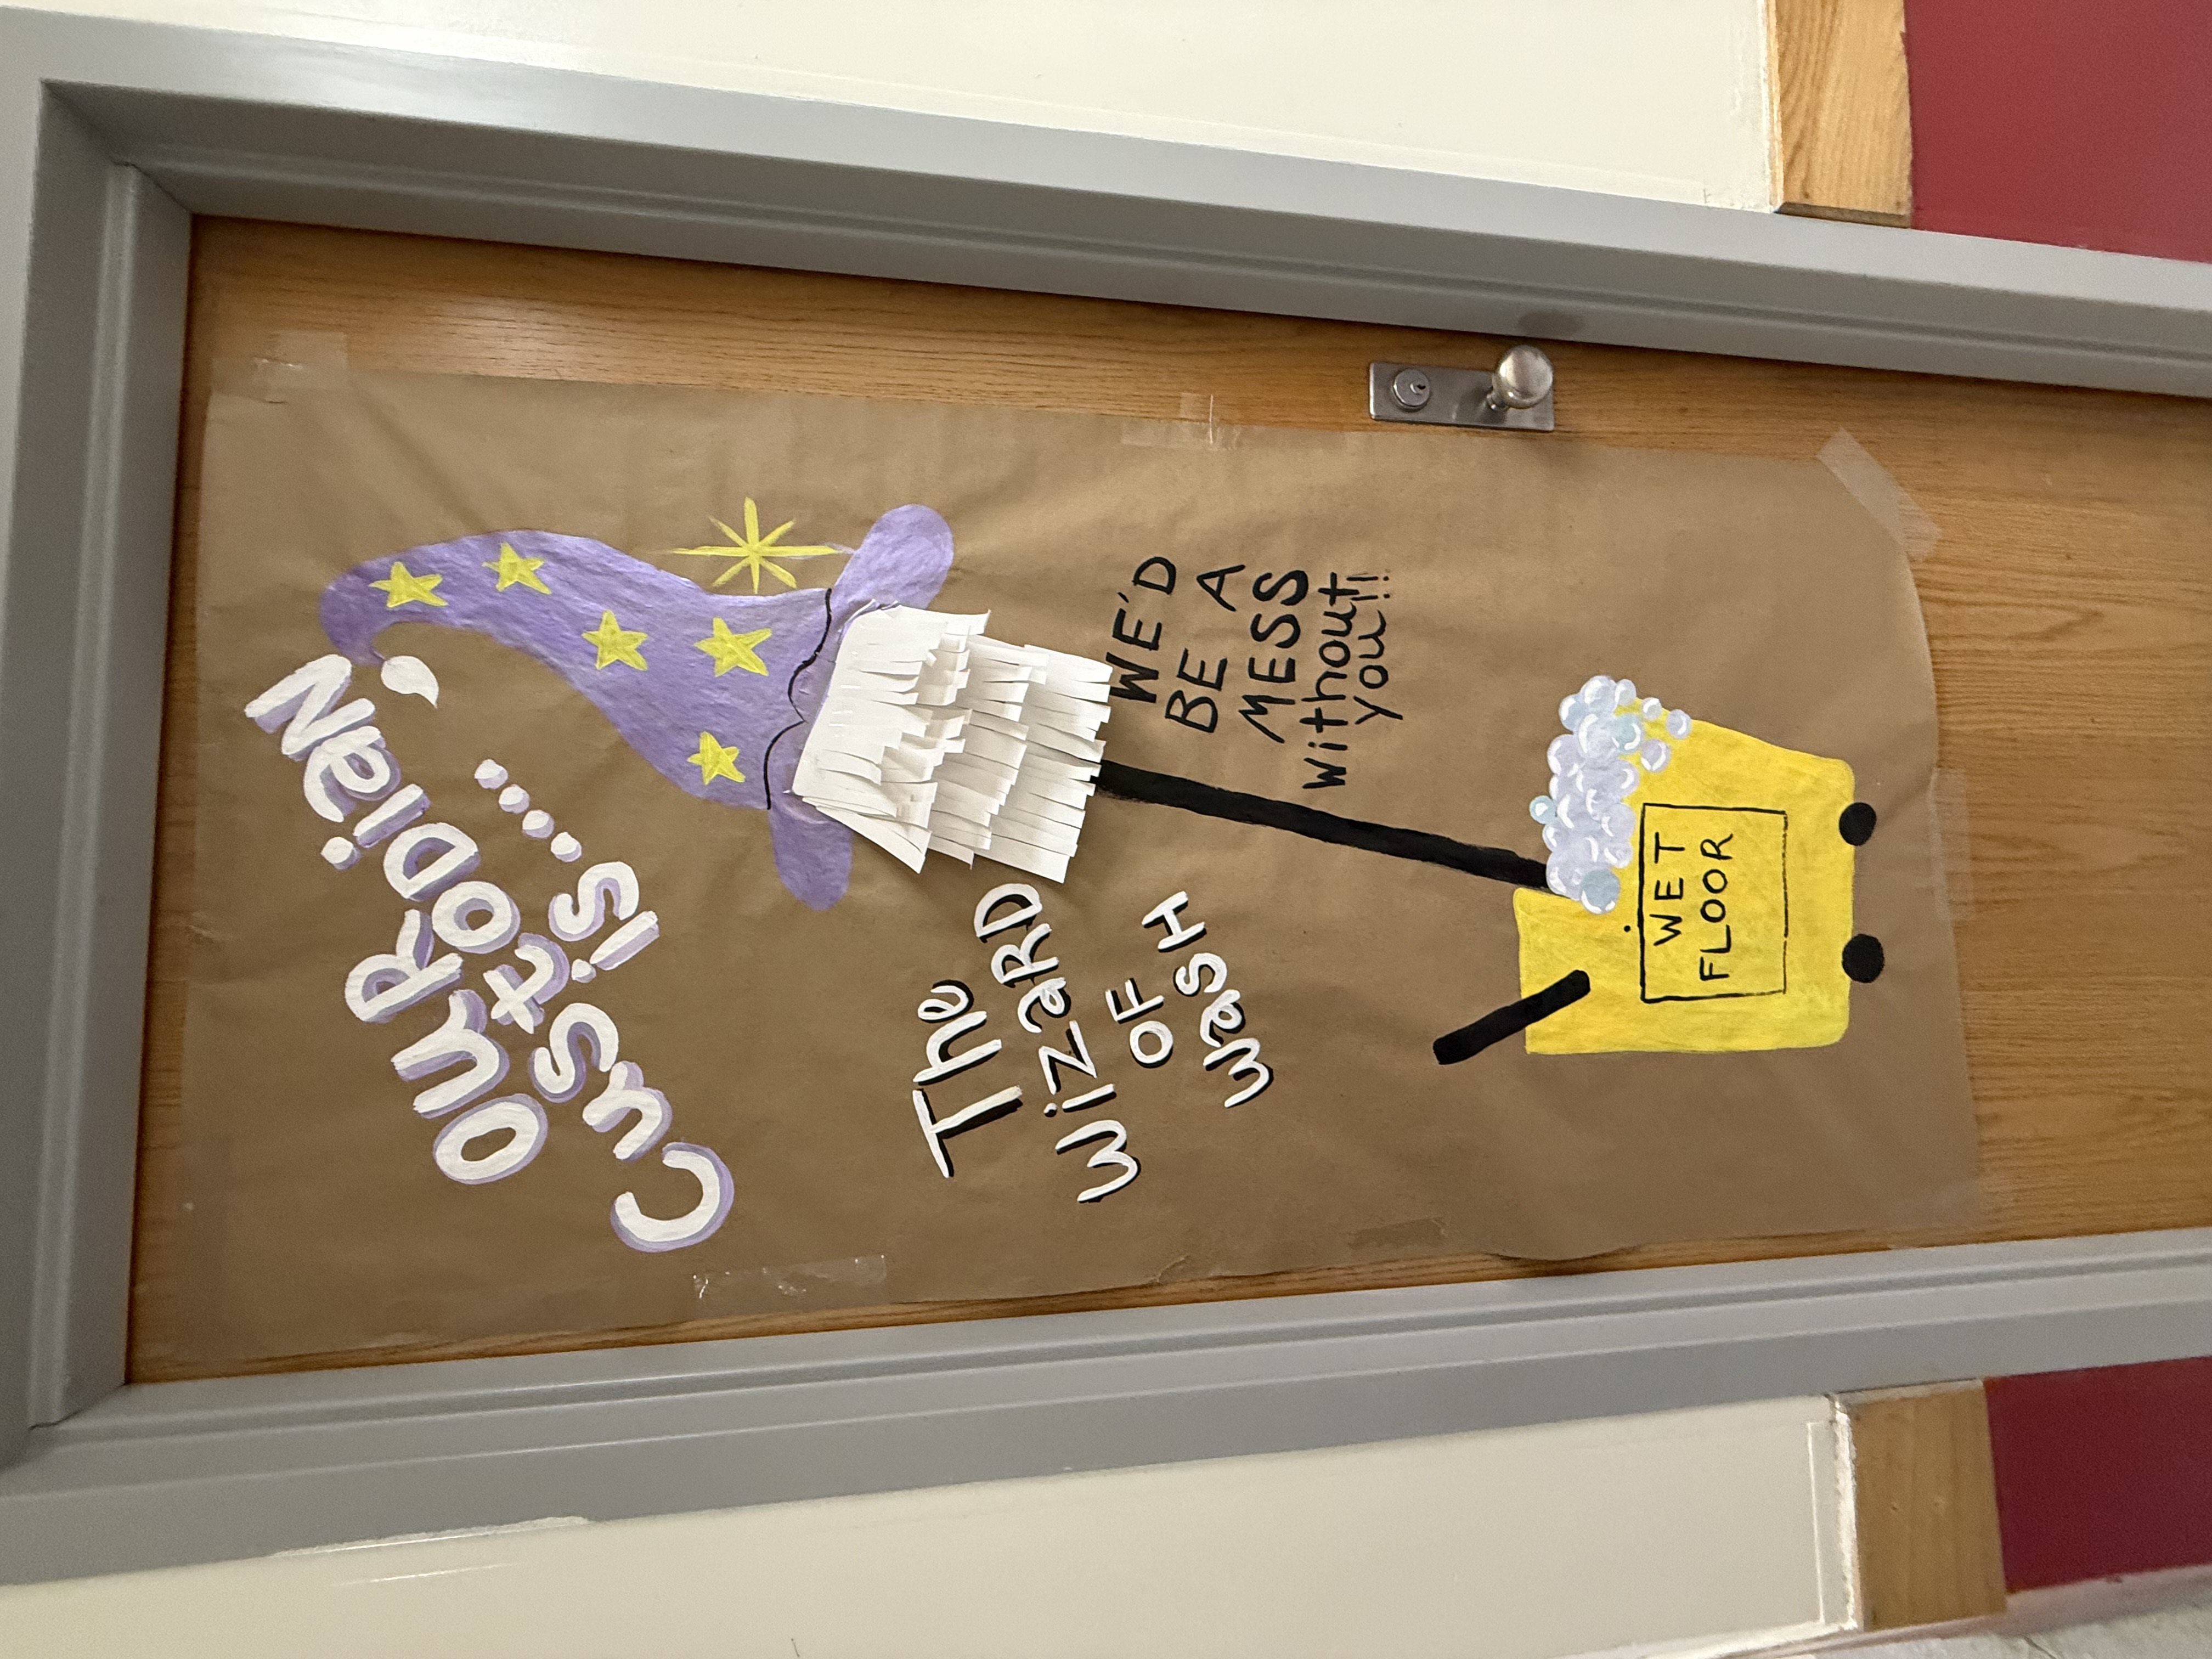 OUR CustODiaN
is...
The
WizaRD
OF
WasH
WE'D
BE A
MESS
Without
you!!
WET
FLOOR